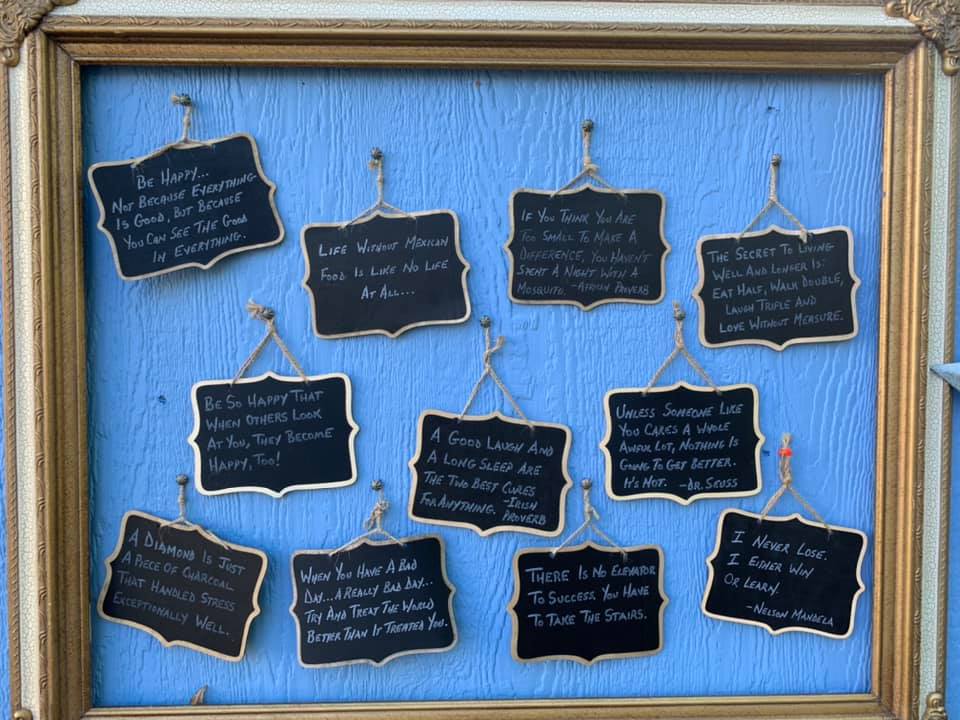 Be Happy...
Not Because Everything
Is Good, But Because
You Can See The Good
In Everything.
Life Without Mexican
Food Is Like No Life
At All...
If You Think You Are
Too Small To Make A
Difference, You Haven't
Spent A Night With A
Mosquito. -African Proverb
The Secret To Living
Well And Longer Is:
Eat Half, Walk Double,
Laugh Triple And
Love Without Measure.
Be So Happy That
When Others Look
At You, They Become
Happy, Too!
A Good Laugh And
A Long Sleep Are
The Two Best Cures
For Anything. -Irish
Proverb
Unless Someone Like
You Cares A Whole
Awful Lot, Nothing Is
Going To Get Better.
It's Not. -Dr. Seuss
A Diamond Is Just
A Piece Of Charcoal
That Handled Stress
Exceptionally Well.
When You Have A Bad
Day... A Really Bad Day...
Try And Treat The World
Better Than It Treated You.
There Is No Elevator
To Success. You Have
To Take The Stairs.
I Never Lose.
I Either Win
Or Learn.
-Nelson Mandela